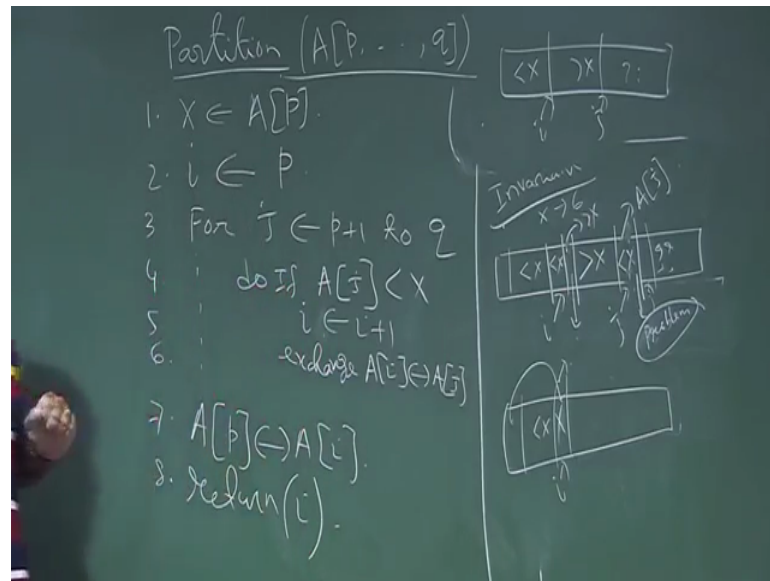 Partition (A[p, ..., q])
1. X ← A[p].
2. i ← p
3 For j ← p+1 to q
4 do If A[j] < X
5 i ← i+1
6. exchange A[i] ↔ A[j]
7. A[p] ↔ A[i].
8. return (i).
<X >X ?:
i j
Invariant
x → 6
>x A[j].
<X <X >X <X ??
i j
problem
<X X
i